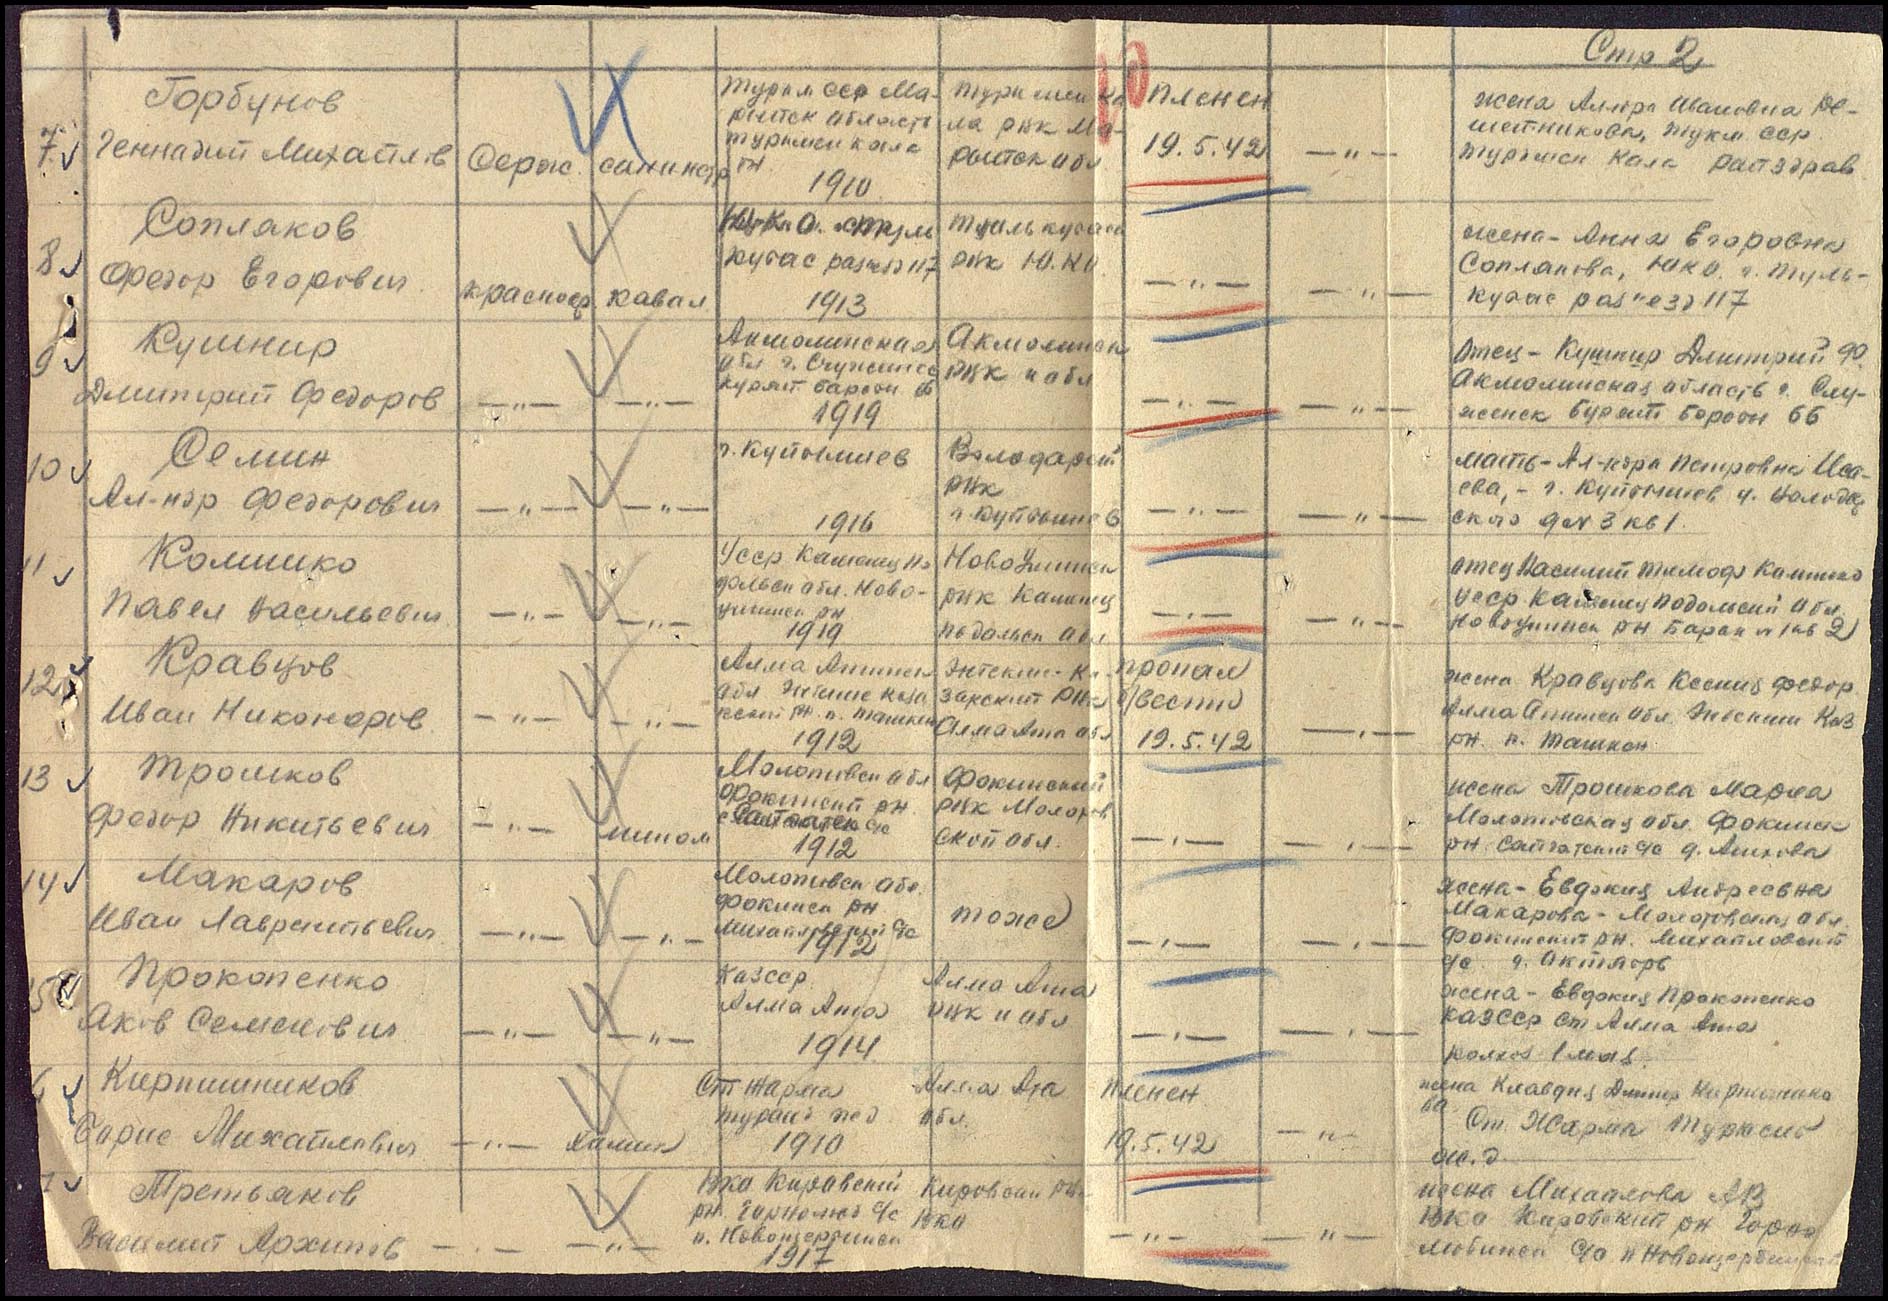 Стр 2
7.
Горбунов
Геннадий Михайлов
Серж.
санинстр
Туркм ССР Ма-
рыйск область
туркмен кала
рн
1910
Туркмен ка
ла рвк Ма-
рыйск обл
пленен
19.5.42
— " —
жена Ре-
шетникова, Туркм ССР
Туркмен Кала райздрав
8
Сопляков
Федор Егорович
красноар
кавал
Ю.К.О.
кубас разъезд 117
1913
Тюлькубасс
рвк Ю.КО.
— " —
— " —
жена - Анна Егоровна
Соплякова, ЮКО. г. Тюль-
кубас разъезд 117
9
Кушнир
Дмитрий Федоров
— " —
— " —
Акмолинская
обл г.
1919
Акмолинск
рвк и обл
— " —
— " —
Отец - Кушнир Дмитрий Ф.
Акмолинская область г.
10
Семин
Ал-ндр Федорович
— " —
— " —
г. Куйбышев
1916
Володарский
рвк
г Куйбышев
— " —
— " —
мать - Ал-ндра Петровна Иса-
ева, - г. Куйбышев
3 кв 1.
11
Комишко
Павел Васильевич
— " —
— " —
УССР Каменец По
дольск обл. Ново-
ушинск рн
1919
НовоУшинск
рвк Каменец
подольск обл
— " —
— " —
отец Василий Тимоф Комишко
УССР Каменец Подольский обл.
Новоушинск рн Барак
12
Кравцов
Иван Никоноров
— " —
— " —
Алма Атинск
обл
1912
Энбекши-Ка-
захский рвк
Алма Ата обл
пропал
б/вести
19.5.42
— " —
жена Кравцова Ксения Федор
Алма Атинск обл. Энбекши Каз
рн.
13
Трошков
Федор Никитьевич
— " —
мином
Молотовск обл
Фокинский рн.
1912
Фокинский
рвк Молотов
ской обл.
— " —
— " —
жена Трошкова Мария
Молотовская обл. Фокинск
рн. Сайгатский с/с
14
Макаров
Иван Лаврентьевич
— " —
— " —
Молотовск обл.
Фокинск рн
Михайловский с/с
1912
тоже
— " —
— " —
жена - Евдокия Андреевна
Макарова - Молотовская обл.
Фокинский рн. Михайловский
с/с д. Октябрь
15
Прокопенко
Яков Семенович
— " —
— " —
КазССР
Алма Ата
1914
Алма Ата
рвк и обл
— " —
— " —
жена - Евдокия Прокопенко
КАЗССР ст Алма Ата
колхоз 1 мая.
6
Кирпишников
Борис Михайлович
— " —
химик
Ст Жарма
Турксиб жд
1910
Алма Ата
обл.
Пленен
19.5.42
— " —
жена Клавдия
ва
Ст. Жарма Турксиб
ж.д
Третьяков
Василий Архипов
— " —
— " —
Юко Кировский
рн.
1917
Кировский рвк
Юко
— " —
— " —
жена Михайлова АВ
Юко Кировский рн